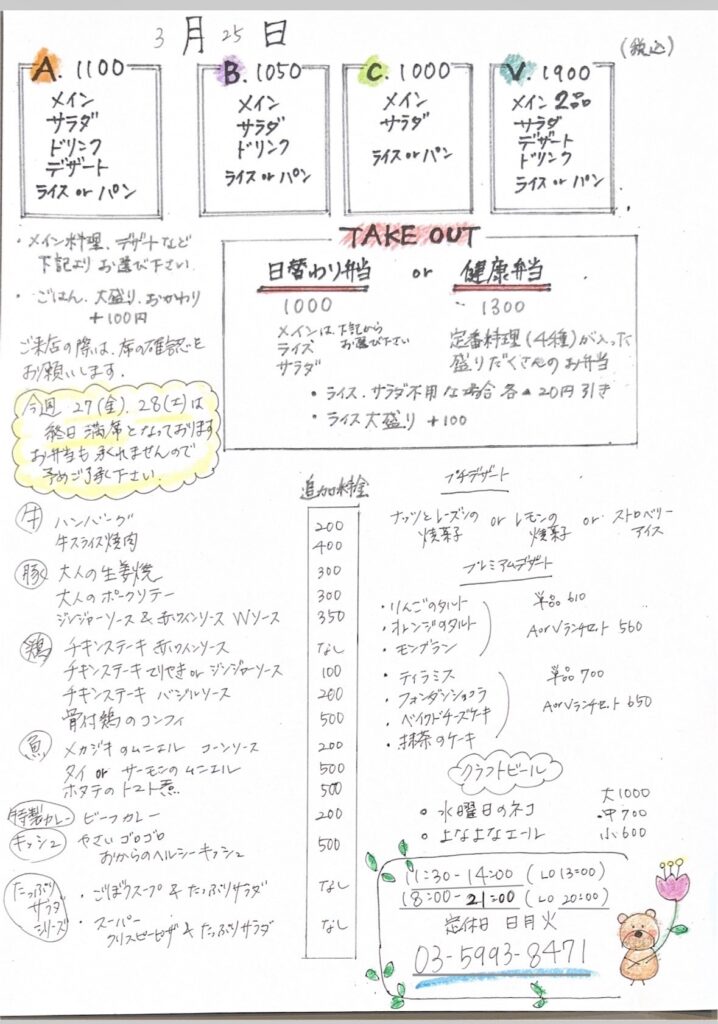 3月25日
(税込)
A. 1100
メイン
サラダ
ドリンク
デザート
ライス or パン
B. 1050
メイン
サラダ
ドリンク
ライス or パン
C. 1000
メイン
サラダ
ライス or パン
V. 1900
メイン 2品
サラダ
デザート
ドリンク
ライス or パン
・メイン料理、デザートなど
下記よりお選び下さい
・ごはん、大盛り、おかわり
+100円
ご来店の際は、席の確認を
お願いします。
今週 27(金)、28(土)は
終日満席となっております
お弁当も承れませんので
予めご了承下さい。
TAKE OUT
日替わり弁当 or 健康弁当
1000
メインは、下記から
お選び下さい
ライス
サラダ
1300
定番料理(4種)が入った
盛りだくさんのお弁当
・ライス、サラダ不用な場合 各▲20円引き
・ライス大盛り +100
追加料金
牛 ハンバーグ 200
牛スライス焼肉 400
豚 大人の生姜焼 300
大人のポークソテー 300
ジンジャーソース & 赤ワインソース Wソース 350
鶏 チキンステーキ 赤ワインソース なし
チキンステーキ てりやき or ジンジャーソース 100
チキンステーキ バジルソース 200
骨付鶏のコンフィ 500
魚 メカジキのムニエル コーンソース 200
タイ or サーモンのムニエル 500
ホタテのトマト煮 500
特製カレー ビーフカレー 200
キッシュ やさいゴロゴロ 500
おからのヘルシーキッシュ
たっぷり
サラダ
シリーズ
・ごぼうスープ & たっぷりサラダ なし
・スーパー
クリスピーピザ & たっぷりサラダ なし
プチデザート
ナッツとレーズンの
焼菓子 or レモンの
焼菓子 or ストロベリー
アイス
プレミアムデザート
・りんごのタルト
・オレンジのタルト
・モンブラン
単品 610
AorVランチセット 560
・ティラミス
・フォンダンショコラ
・ベイクドチーズケーキ
・抹茶のケーキ
単品 700
AorVランチセット 650
クラフトビール
・水曜日のネコ
・よなよなエール
大1000
中700
小600
11:30-14:00 (LO 13:00)
18:00-21:00 (LO 20:00)
定休日 日月火
03-5993-8471